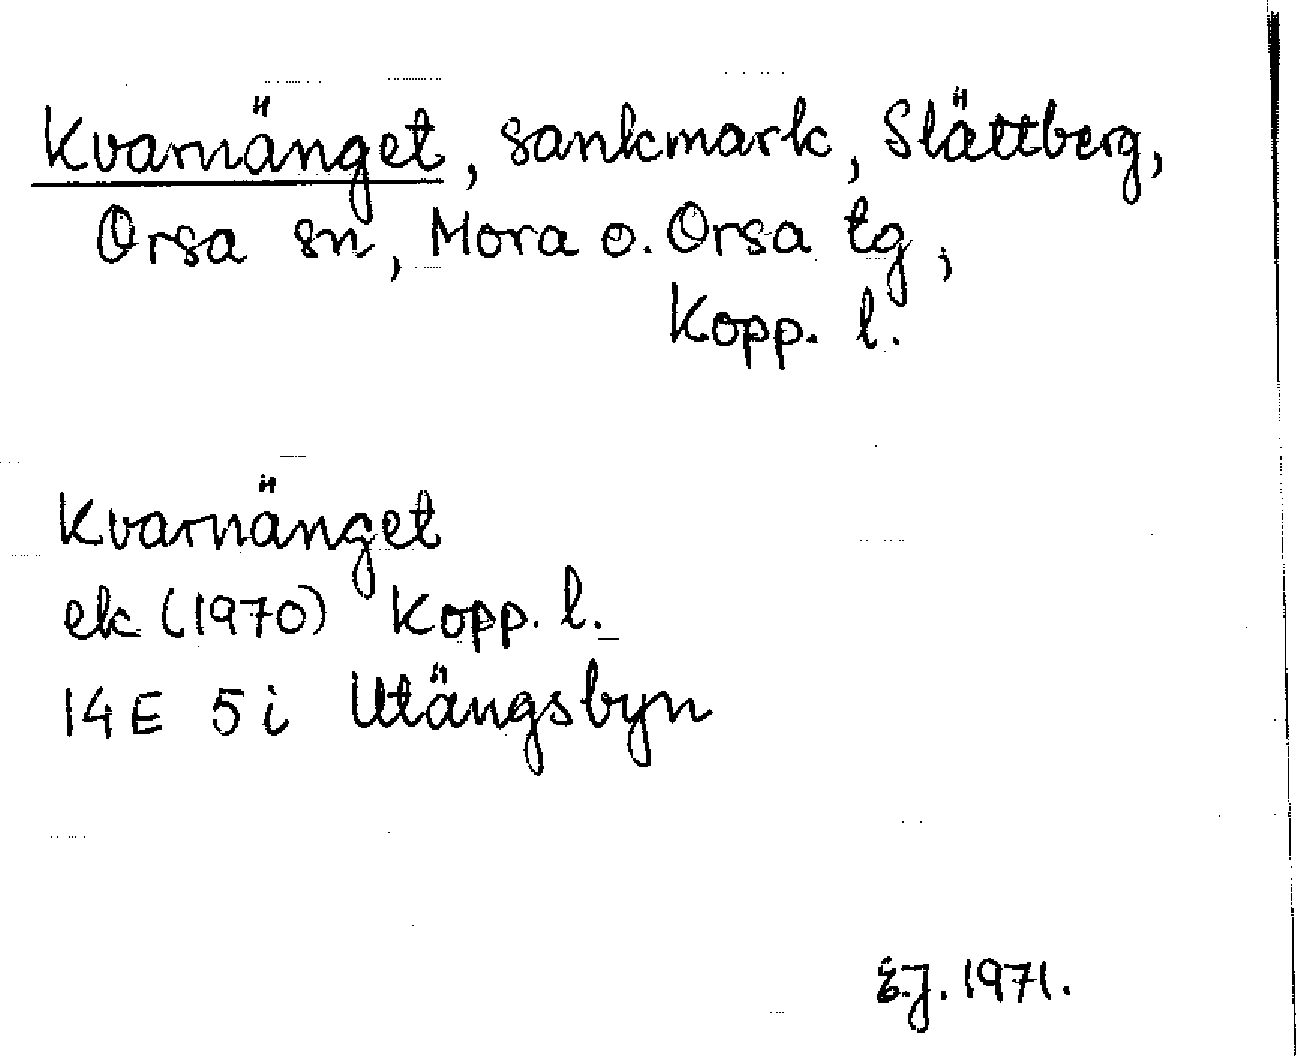 Kvarnänget, sankmark, Slättberg,
Orsa sn, Mora o. Orsa tg,
Kopp. l.
Kvarnänget
ek (1970) Kopp. l.
14E 5i Utängsbyn
E.J. 1971.